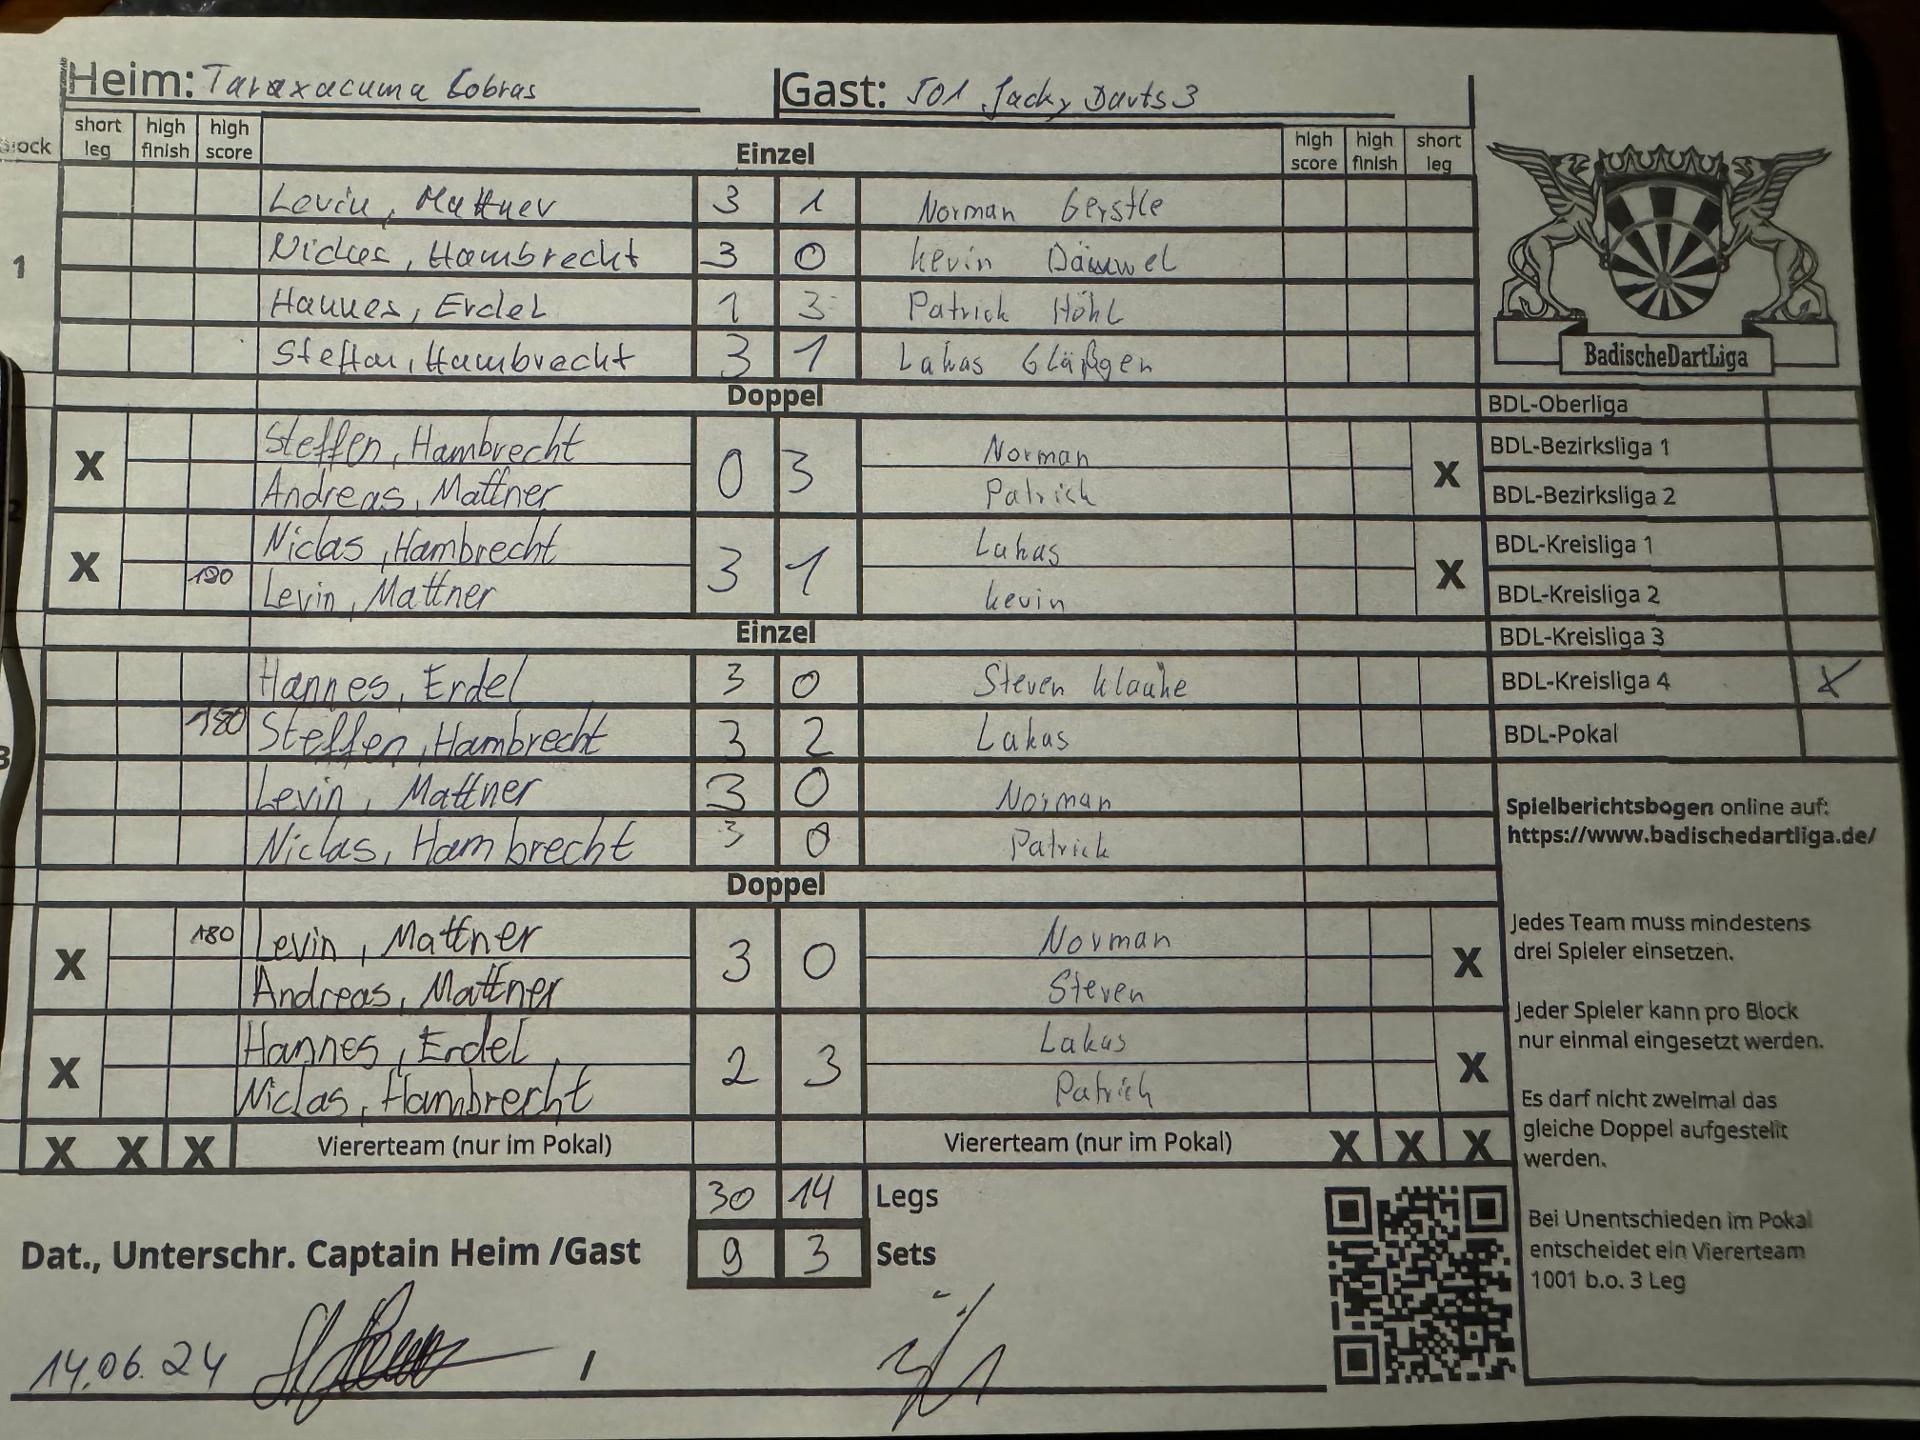 Heim: Taraxacuma Cobras Gast: 501 Jacky Darts 3
Block short leg high finish high score Einzel high score high finish short leg
1
Levin, Mattner 3 1 Norman Gerstle
Niclas, Hambrecht 3 0 Kevin Dämmel
Hannes, Erdel 1 3 Patrick Höhl
Steffen, Hambrecht 3 1 Lukas Gläßgen
Doppel
X Steffen, Hambrecht 0 3 Norman X
Andreas, Mattner Patrick
2
X Niclas, Hambrecht 3 1 Lukas X
180 Levin, Mattner Kevin
Einzel
Hannes, Erdel 3 0 Steven Klauke
180 Steffen, Hambrecht 3 2 Lukas
3
Levin, Mattner 3 0 Norman
Niclas, Hambrecht 3 0 Patrick
Doppel
X 180 Levin, Mattner 3 0 Norman X
Andreas, Mattner Steven
X Hannes, Erdel 2 3 Lukas X
Niclas, Hambrecht Patrick
X X X Viererteam (nur im Pokal) Viererteam (nur im Pokal) X X X
30 14 Legs
Dat., Unterschr. Captain Heim /Gast 9 3 Sets
14.06.24 /
BadischeDartLiga
BDL-Oberliga
BDL-Bezirksliga 1
BDL-Bezirksliga 2
BDL-Kreisliga 1
BDL-Kreisliga 2
BDL-Kreisliga 3
BDL-Kreisliga 4 X
BDL-Pokal
Spielberichtsbogen online auf:
https://www.badischedartliga.de/
Jedes Team muss mindestens
drei Spieler einsetzen.
Jeder Spieler kann pro Block
nur einmal eingesetzt werden.
Es darf nicht zweimal das
gleiche Doppel aufgestellt
werden.
Bei Unentschieden im Pokal
entscheidet ein Viererteam
1001 b.o. 3 Leg